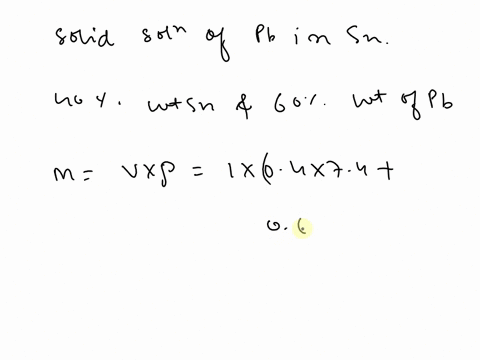 solid solⁿ of Pb in Sn.
40 %. wt Sn & 60%. wt of Pb
m = V×ρ = 1×(0.4×7.4 +
0.6